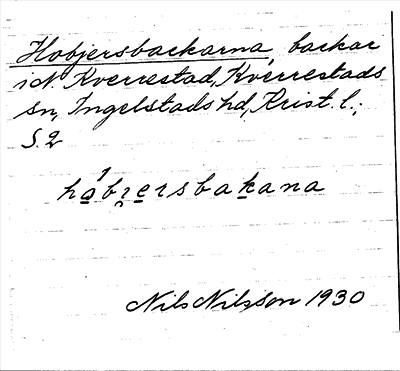 Hobjersbackarna, backar
i N. Kverrestad, Kverrestads
sn, Ingelstads hd, Krist. l.;
S. 2
håbjersbakana
Nils Nilsson 1930